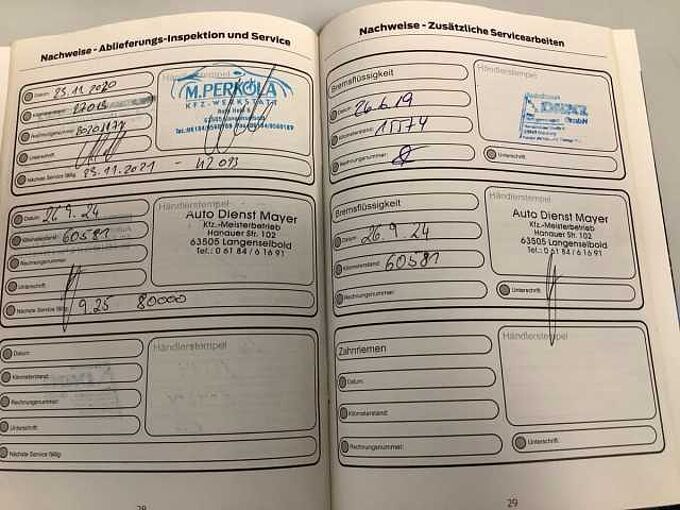 Nachweise - Ablieferungs-Inspektion und Service
Datum: 25.11.2020
Kilometerstand:
Rechnungsnummer:
Unterschrift:
Nächste Service fällig: 25.11.2021 - 42 013
Händlerstempel
M.PERKOLA
KFZ-WERKSTATT
63505 Langenselbold
Datum: 26 9. 24
Kilometerstand: 60581
Rechnungsnummer:
Unterschrift:
Nächste Service fällig: 9.25 80000
Händlerstempel
Auto Dienst Mayer
Kfz.-Meisterbetrieb
Hanauer Str. 102
63505 Langenselbold
Tel.: 0 61 84 / 6 16 91
Datum:
Kilometerstand:
Rechnungsnummer:
Unterschrift:
Nächste Service fällig:
Händlerstempel
28
Nachweise - Zusätzliche Servicearbeiten
Bremsflüssigkeit
Datum: 26.6.19
Kilometerstand: 15574
Rechnungsnummer:
Händlerstempel
Autohaus
GmbH
Unterschrift:
Bremsflüssigkeit
Datum: 26.9.24
Kilometerstand: 60581
Rechnungsnummer:
Händlerstempel
Auto Dienst Mayer
Kfz.-Meisterbetrieb
Hanauer Str. 102
63505 Langenselbold
Tel.: 0 61 84 / 6 16 91
Unterschrift:
Zahnriemen
Datum:
Kilometerstand:
Rechnungsnummer:
Händlerstempel
Unterschrift:
29